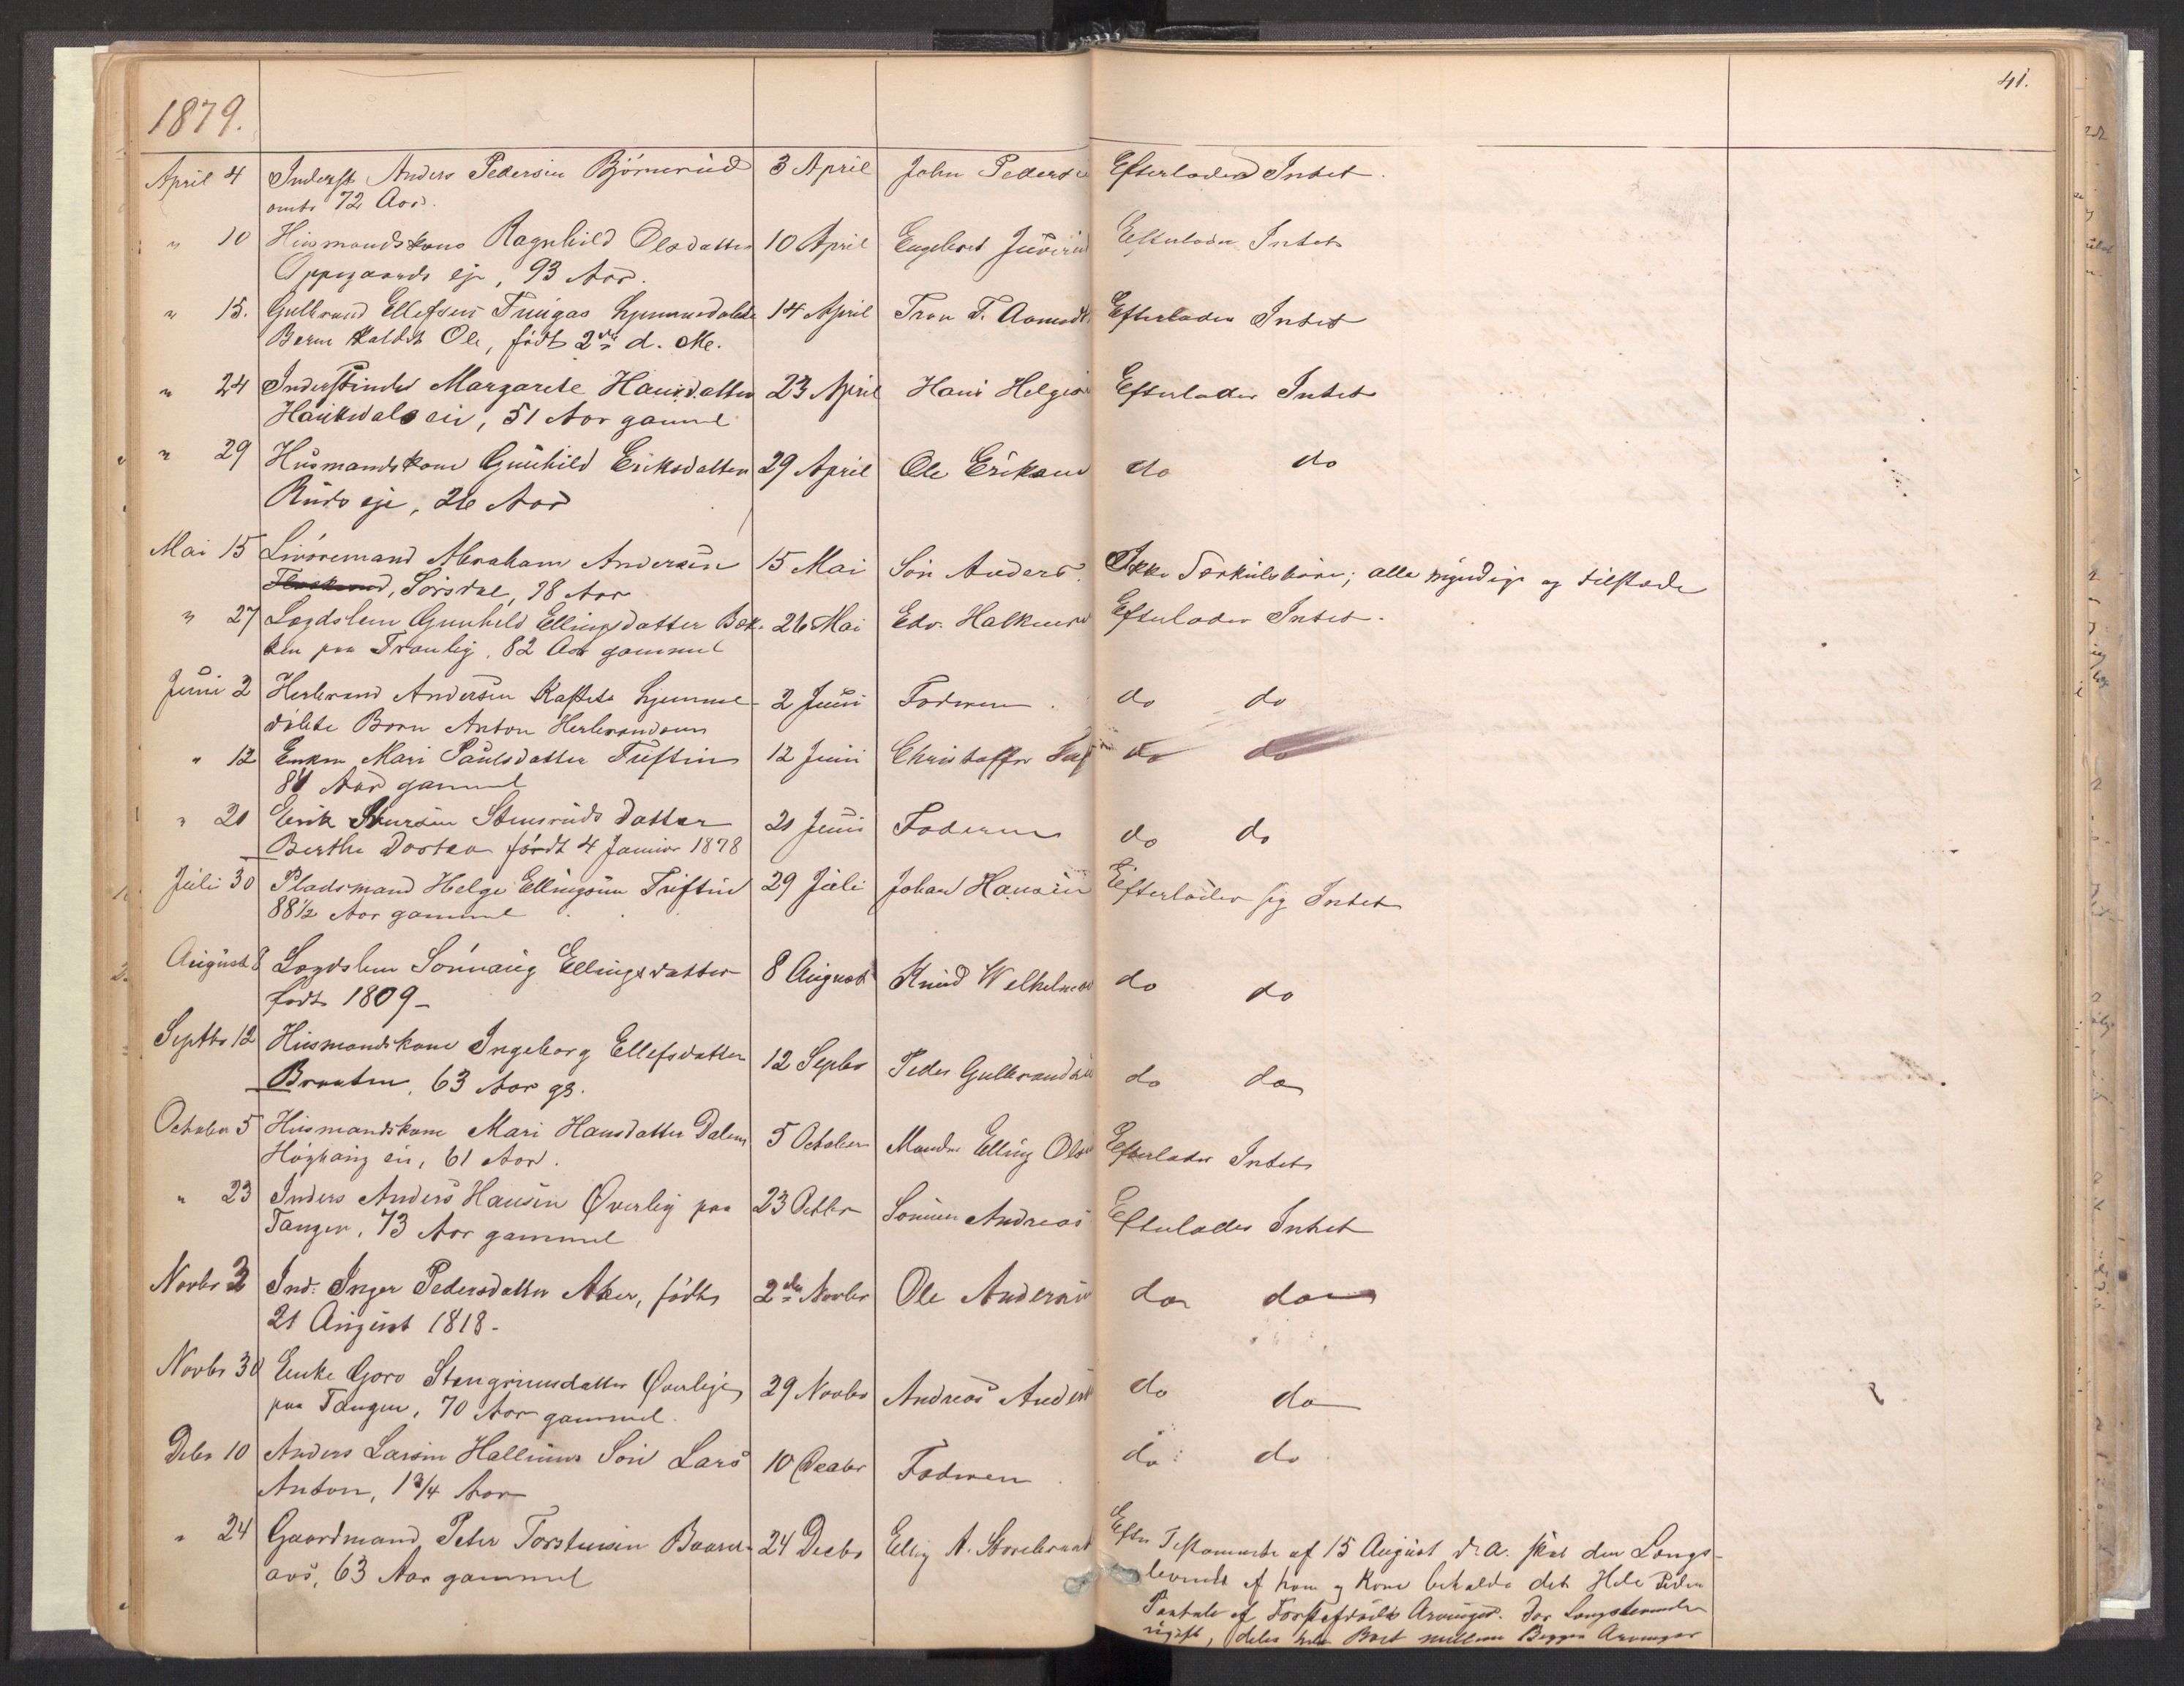 41.
1879.
April 4 Inderst Anders Pedersen Björnerud 3 April John Pederse Efterlader Intet.
omtr 72 Aar.
" 10 Husmandskone Ragnhild Olsdatter 10 April Engebret Efterlader Intet
Oppegaards eje, 93 Aar.
" 15. Gulbrand Ellefsens hjemmedøbte 14 April Tron T. Efterlader Intet
Barn kaldet Ole, född 2den d. Me.
" 24 Inderstinde Margarete Hansdatter 23 April Hans Helges Efterlader Intet
eie, 51 Aar gammel
" 29 Husmandskone Gunhild Eriksdatter 29 April Ole Eriksen do do
Ruds eje, 26 Aar
Mai 15 Livöremand Abraham Andersen 15 Mai Sön Anders. Ikke Særkulsbörn; alle myndige og tilstæde
Sörsdal, 78 Aar
" 27 Lægdslem Gunhild Ellingsdatter Bak- 26 Mai Edv. Efterlader Intet.
ken paa Tranlig, 82 Aar gammel
Juni 2 Herbrand Andersen hjemme- 2 Juni Faderen. do do
döbte Barn Anton Herbrandsen
" 12 Enken Mari Paulsdatter Tuftin 12 Juni Christoffer Tuf do do
84 Aar gammel
" 21 Erik Stensruds datter 21 Juni Faderen do do
Berthe Dortea född 4 Januar 1878
Juli 30 Pladsmand Helge Ellingsen Tuftin 29 Juli Johan Hansen Efterlader sig Intet
88½ Aar gammel
August 8 Lægdslem Sönnaug Ellingsdatter 8 August Knud Welhelmse do do
født 1809-
Septbr 12 Husmandskone Ingeborg Ellefsdatter 12 Septbr Peder Gulbrandse do do
Braaten, 63 Aar gl.
October 5 Husmandskone Mari Hansdatter Dalen 5 October Manden Elling Olse Efterlader Intet
Høghaug eie, 61 Aar.
" 23 Inders Anders Hansen Øverlig paa 23 Octbr Sönnen Andreas Efterlader Intet
Tangen, 73 Aar gammel
Novbr 3 Ind: Inger Pedersdatter Aker, född 2den Novbr Ole Anderse do do
21 August 1818-
Novbr 30 Enke Goro Stengrimsdatter Øverlig 29 Novbr Andreas Anders do do
paa Tangen, 70 Aar gammel.
Debr 10 Anders Larsen Hallums Sön Lars 10 Decbr Faderen do do
Anton, 1¾ Aar
" 24 Gaardmand Peter Torstensen Baard- 24 Decbr Ellig A. Storebraat Efter Testamente af 15 August d. A. skal den Længst-
aas, 63 Aar gammel levende af ham og Kone beholde det Hele Uden
af Forstafdödes Arvinger. Dör Længstlevende
ugift, deles hele Boet mellem Begges Arvinger